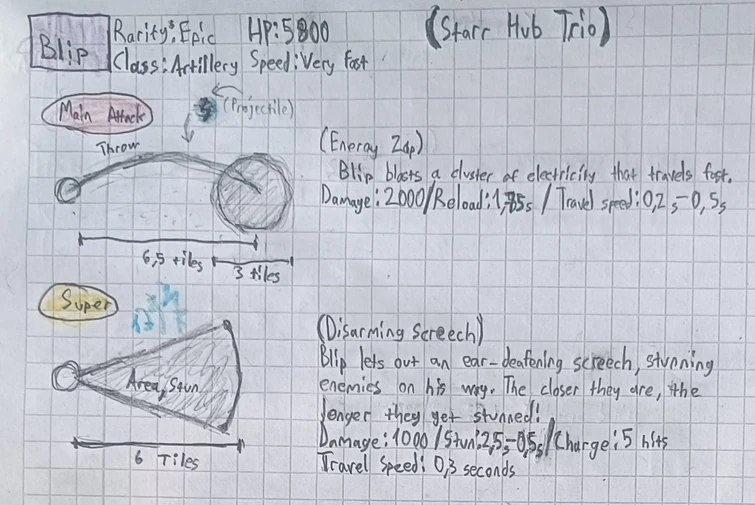 Blip
Rarity: Epic HP: 5800
(Starr Hub Trio)
Class: Artillery Speed: Very fast
Main Attack
(Projectile)
Throw
6,5 tiles
3 tiles
(Energy Zap)
Blip blasts a cluster of electricity that travels fast.
Damage: 2000/Reload: 1,75s / Travel speed: 0,2s-0,5s
Super
Area, Stun
6 Tiles
(Disarming Screech)
Blip lets out an ear-deafening screech, stunning
enemies on his way. The closer they are, the
longer they get stunned!
Damage: 1000/Stun: 2,5s-0,5s/Charge: 5 hits
Travel Speed: 0,3 seconds